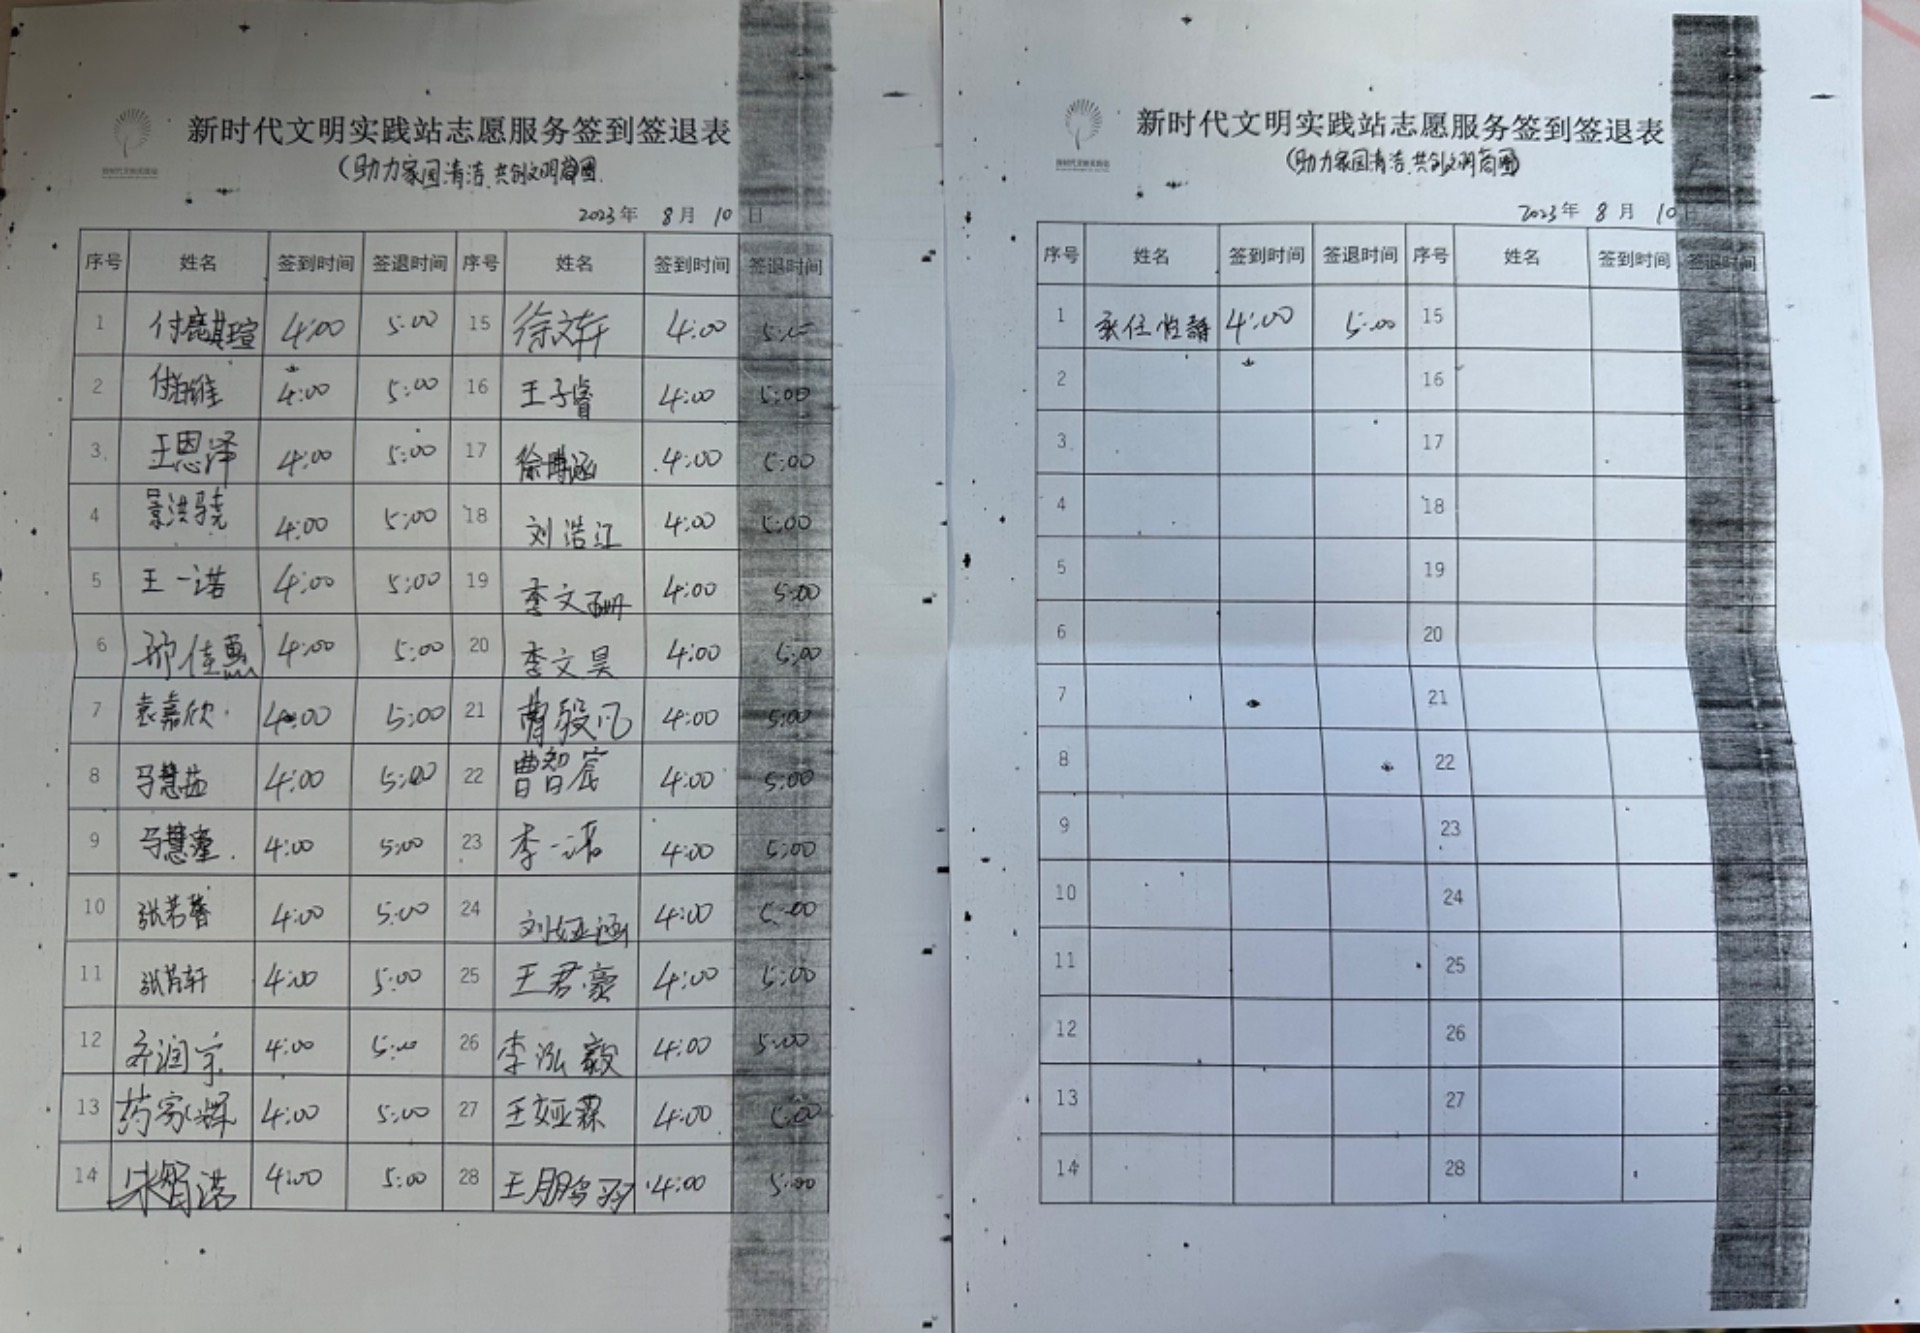 新时代文明实践站志愿服务签到签退表
(助力家园清洁、共创文明商圈
2023年 8月 10日
序号 姓名 签到时间 签退时间 序号 姓名 签到时间 签退时间
1 4:00 5:00 15 徐文轩 4:00 5:00
2 4:00 5:00 16 王子睿 4:00 5:00
3 王恩泽 4:00 5:00 17 4:00 5:00
4 景洪骁 4:00 5:00 18 刘浩江 4:00 5:00
5 王一诺 4:00 5:00 19 李文珊 4:00 5:00
6 邢佳惠 4:00 5:00 20 李文昊 4:00 5:00
7 袁嘉欣 4:00 5:00 21 曹毅凡 4:00 5:00
8 马慧茹 4:00 5:00 22 曹智宸 4:00 5:00
9 马慧 4:00 5:00 23 李一诺 4:00 5:00
10 张若馨 4:00 5:00 24 刘娅涵 4:00 5:00
11 张芮轩 4:00 5:00 25 王君豪 4:00 5:00
12 齐润宇 4:00 5:00 26 李泓毅 4:00 5:00
13 药家辉 4:00 5:00 27 王娅霖 4:00 5:00
14 4:00 5:00 28 王鹏羽 4:00 5:00
新时代文明实践站志愿服务签到签退表
(助力家园清洁、共创文明商圈)
2023年 8月 10日
序号 姓名 签到时间 签退时间 序号 姓名 签到时间 签退时间
1 4:00 5:00 15
2 16
3 17
4 18
5 19
6 20
7 21
8 22
9 23
10 24
11 25
12 26
13 27
14 28